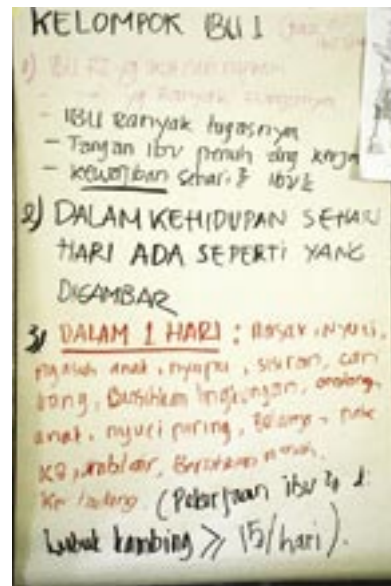 KELOMPOK IBU 1
1) IBU
- yg Banyak
- IBU Banyak tugasnya
- Tangan ibu penuh dng kerja
- Kewajiban sehari2 ibu2
2) DALAM KEHIDUPAN SEHARI
HARI ADA SEPERTI YANG
DIGAMBAR
3) DALAM 1 HARI : Masak, nyuci,
ngasuh anak, nyapu, sisiran, cari
uang, Bersihkan lingkungan,
anak, nyuci piring, Belanja,
KB, ambil air, Bersihkan rumah,
Ke ladang. (Pekerjaan ibu2 di
Lubuk kambing ≥ 15/hari).